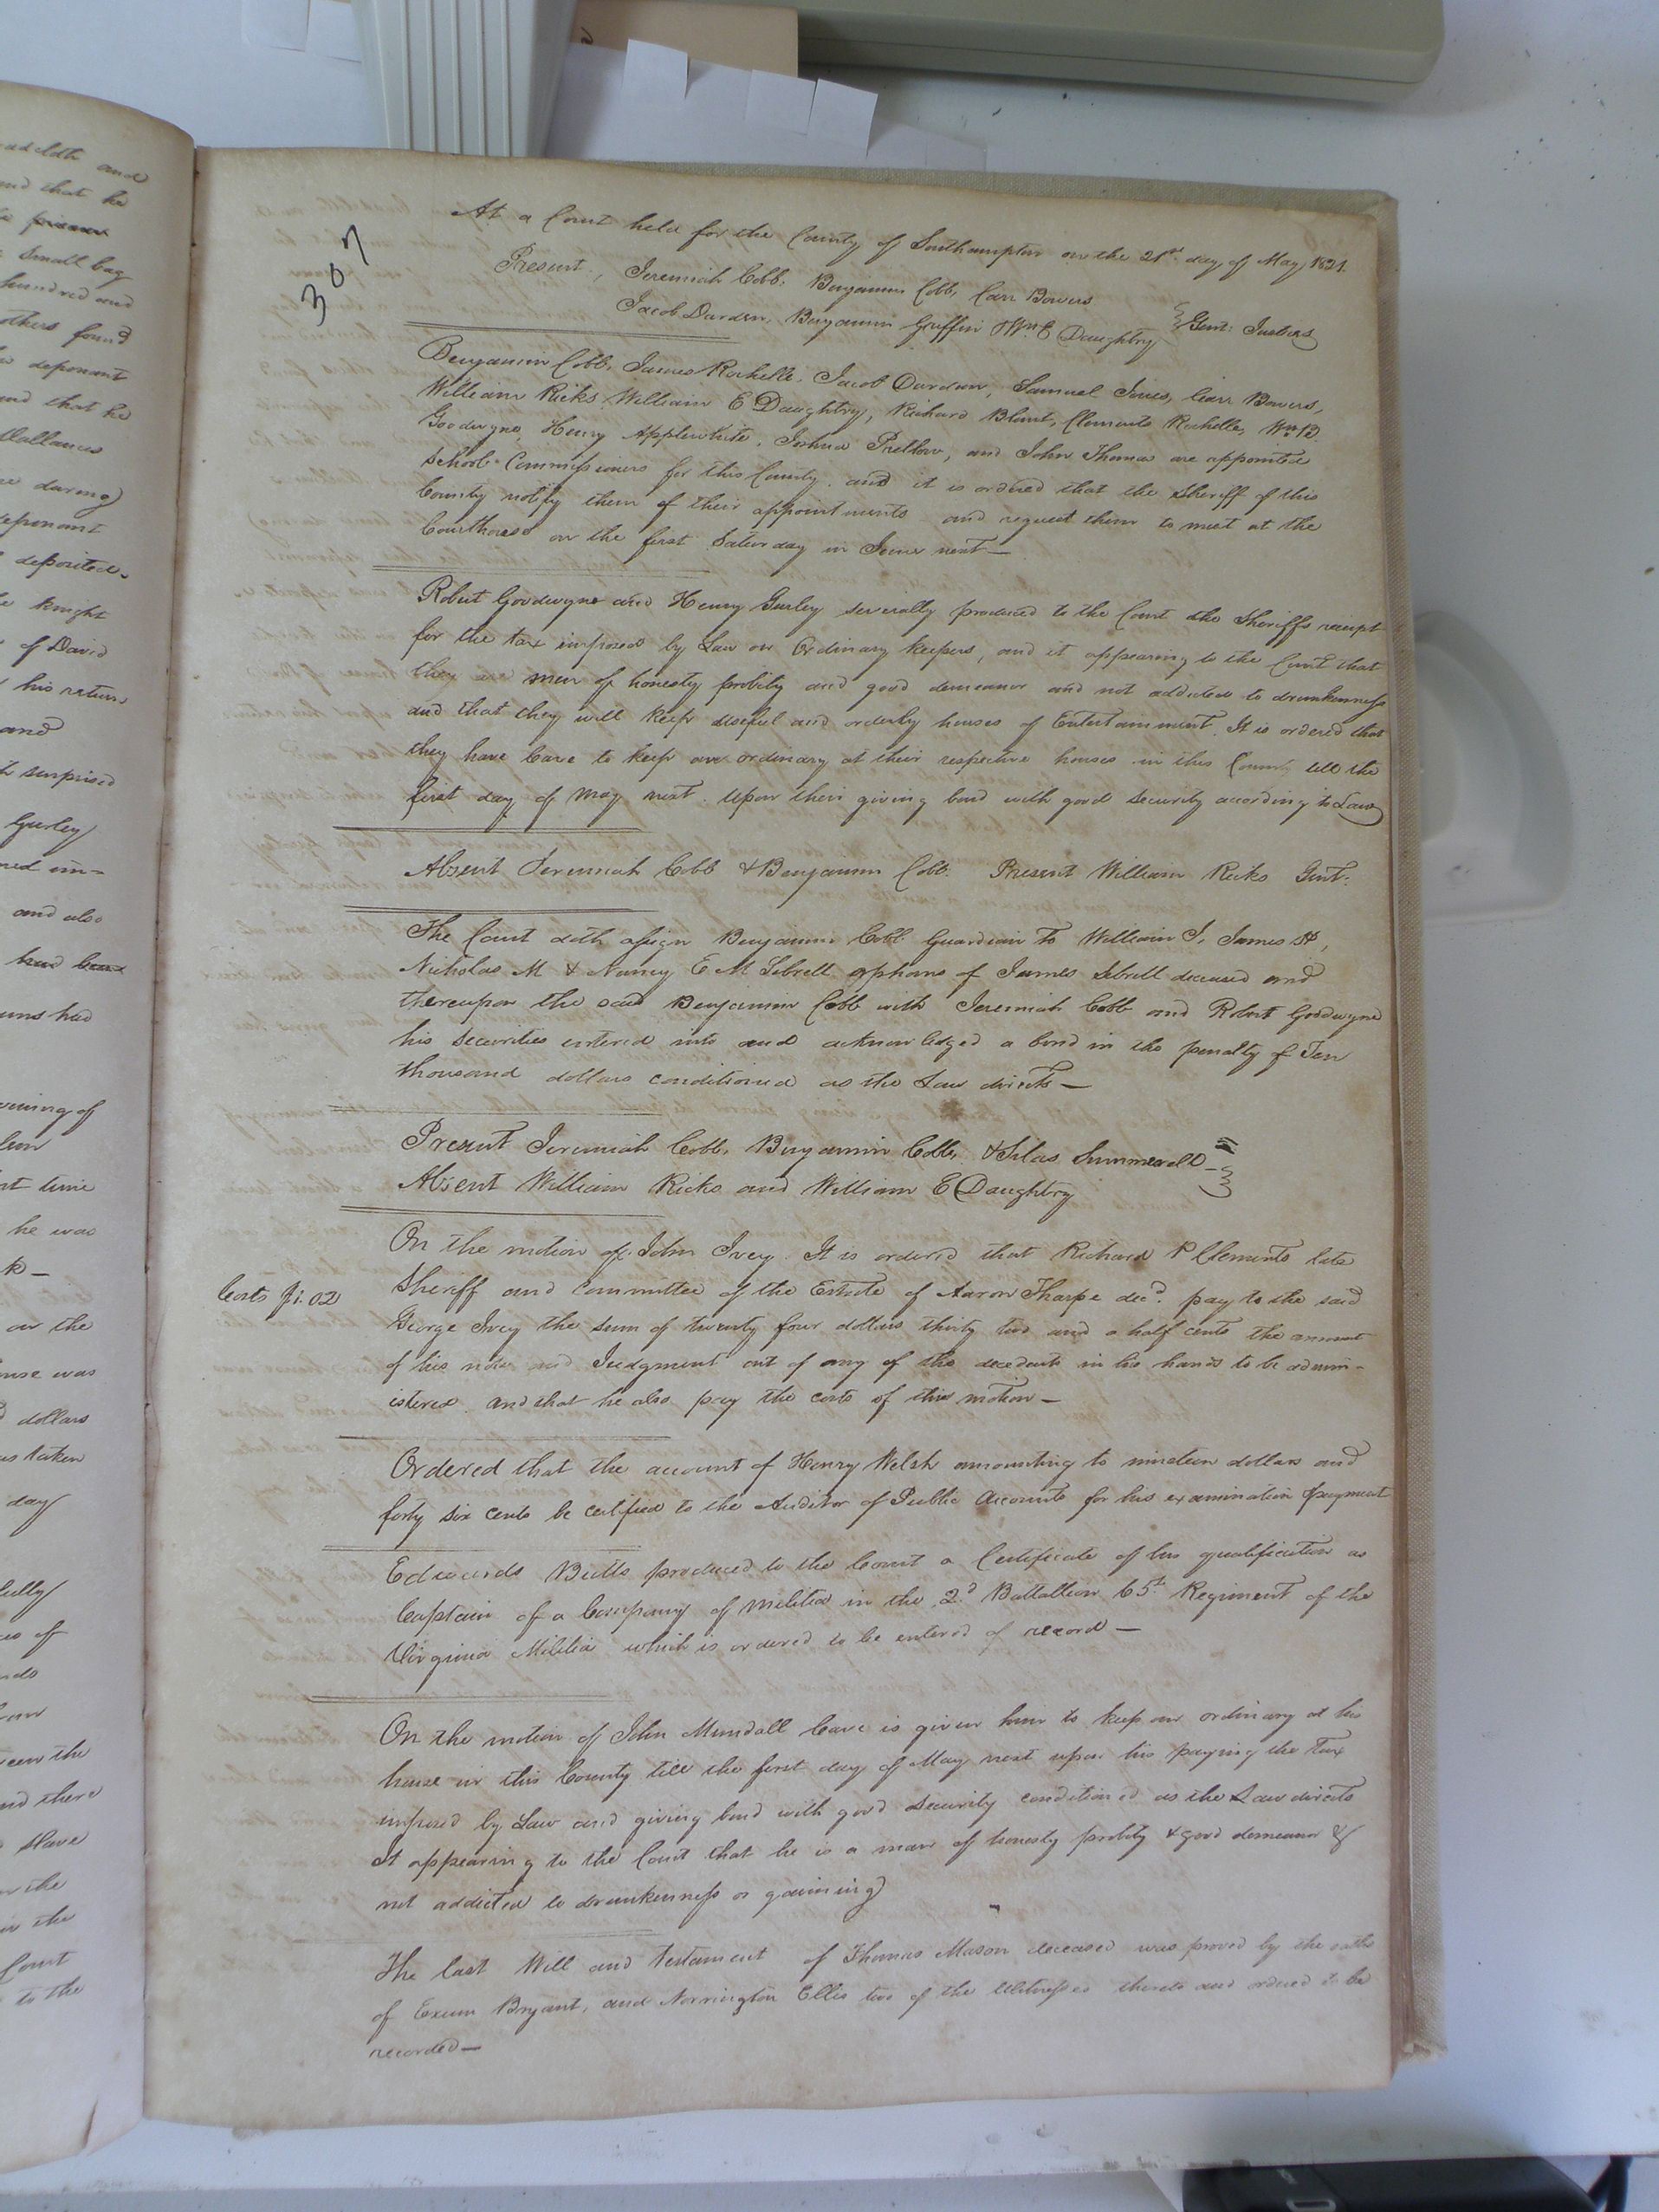 307
At a Court held for the County of Southampton on the 21st day of May 1821.
Present, Jeremiah Cobb, Benjamin Cobb, Carr Bowers
Jacob Darden, Benjamin Griffin & Wm. E Daughtry } Gent: Justices
Benjamin Cobb, James Rochelle, Jacob Darden, Samuel Jones, Carr Bowers,
William Ricks, William E Daughtry, Richard Blunt, Clements Rochelle, Wm. B.
Goodwyne, Henry Applewhite, Joshua Pretlow, and John Thomas are appointed
School Commissioners for this County, and it is ordered that the Sheriff of this
County notify them of their appointments and request them to meet at the
Courthouse on the first Saturday in June next —
Robert Goodwyne and Henry Gurley severally produced to the Court the Sheriffs receipt
for the tax imposed by Law on Ordinary keepers, and it appearing to the Court that
they are men of honesty probity and good demeanor and not addicted to drunkenness
and that they will keep useful and orderly houses of Entertainment. It is ordered that
they have leave to keep an ordinary at their respective houses in this County till the
first day of May next. Upon their giving bond with good security according to Law
Absent Jeremiah Cobb & Benjamin Cobb. Present William Ricks Gent:
The Court doth assign Benjamin Cobb Guardian to William J, James H,
Nicholas M & Nancy E M Sebrell orphans of James Sebrell deceased and
thereupon the said Benjamin Cobb with Jeremiah Cobb and Robert Goodwyne
his securities entered into and acknowledged a bond in the penalty of Ten
thousand dollars conditioned as the Law directs —
Present Jeremiah Cobb, Benjamin Cobb, & Silas Summerell —
Absent William Ricks and William E Daughtry
On the motion of John Ivey. It is ordered that Richard P Clements late
Costs $1.02 Sheriff and Committee of the Estate of Aaron Tharpe decd. pay to the said
George Ivey the sum of twenty four dollars thirty two and a half cents the amount
of his note and Judgment out of any of the decedents in his hands to be admin-
istered. and that he also pay the costs of this motion —
Ordered that the account of Henry Welsh amounting to nineteen dollars and
forty six cents be certified to the Auditor of Public Accounts for his examination & payment
Edwards Butts produced to the Court a Certificate of his qualification as
Captain of a Company of Militia in the 2d Battalion 65th Regiment of the
Virginia Militia which is ordered to be entered of record —
On the motion of John Mundall leave is given him to keep an ordinary at his
house in this County till the first day of May next upon his paying the Tax
imposed by Law and giving bond with good security conditioned as the Law directs
It appearing to the Court that he is a man of honesty probity & good demeanor &
not addicted to drunkenness or gaiming
The last Will and Testament of Thomas Mason deceased was proved by the oaths
of Exum Bryant, and Norrington Ellis two of the Witnesses thereto and ordered to be
recorded —